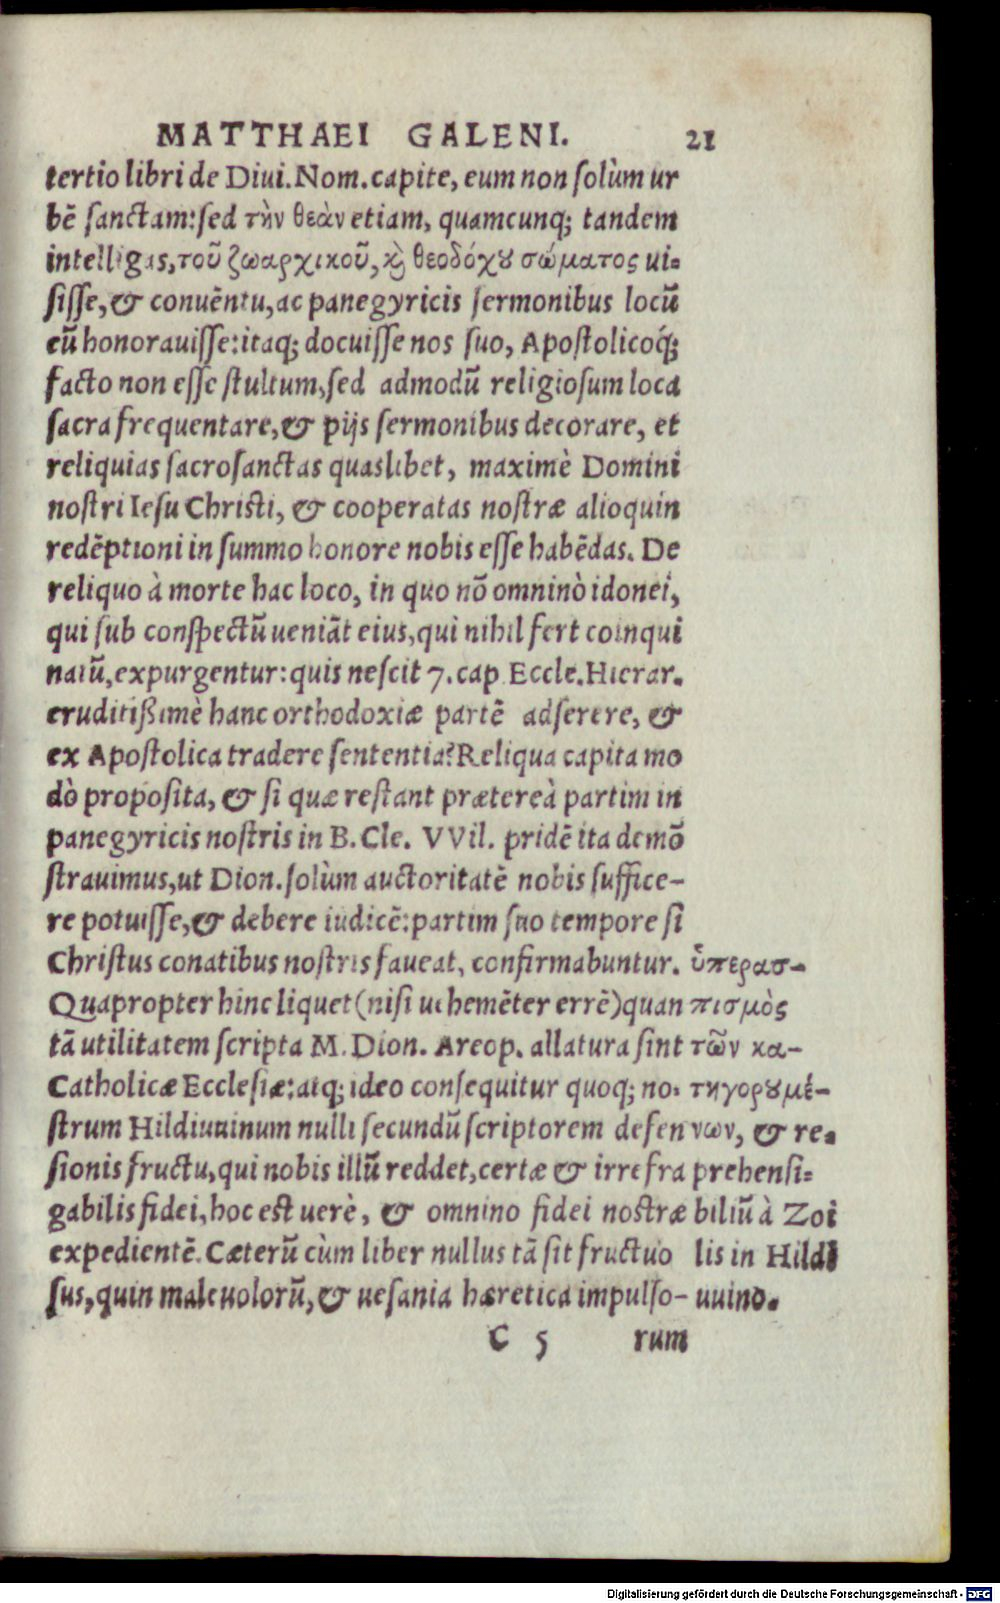 MATTHAEI GALENI. 21
tertio libri de Diui. Nom. capite, eum non solùm ur
bẽ sanctam: sed τὴν θεὰν etiam, quamcunq; tandem
intelligas, τοῦ ζωαρχικοῦ, ϗ̀ θεοδόχου σώματος ui-
sisse, & conuẽntu, ac panegyricis sermonibus locũ
eũ honorauisse: itaq; docuisse nos suo, Apostolicoq́;
facto non esse stultum, sed admodũ religiosum loca
sacra frequentare, & pijs sermonibus decorare, et
reliquias sacrosanctas quaslibet, maximè Domini
nostri Iesu Christi, & cooperatas nostræ alioquin
redẽptioni in summo honore nobis esse habẽdas. De
reliquo à morte hac loco, in quo nõ omninò idonei,
qui sub conspectũ ueniãt eius, qui nihil fert coinqui
natũ, expurgentur: quis nescit 7. cap Eccle. Hierar.
eruditißimè hanc orthodoxiæ partẽ adserere, &
ex Apostolica tradere sententia? Reliqua capita mo
dò proposita, & si quæ restant prætereà partim in
panegyricis nostris in B. Cle. VVil. pridẽ ita demõ
strauimus, ut Dion. solùm auctoritatẽ nobis suffice-
re potuisse, & debere iudicẽ: partim suo tempore si
Christus conatibus nostris faueat, confirmabuntur.
Quapropter hinc liquet (nisi uehemẽter errẽ) quan
tã utilitatem scripta M. Dion. Areop. allatura sint
Catholicæ Ecclesiæ: atq; ideo consequitur quoq; no-
strum Hildiuuinum nulli secundũ scriptorem defen
sionis fructu, qui nobis illũ reddet, certæ & irrefra
gabilis fidei, hoc est uerè, & omnino fidei nostræ
expedientẽ. Cæterũ cùm liber nullus tã sit fructuo
sus, quin maleuolorũ, & uesania hæretica impulso-
ὑπερασ-
πισμὸς
τῶν κα-
τηγορουμέ-
νων, & re-
prehensi-
biliũ à Zoi
lis in Hildi
uuino.
C 5 rum
Digitalisierung gefördert durch die Deutsche Forschungsgemeinschaft - DFG